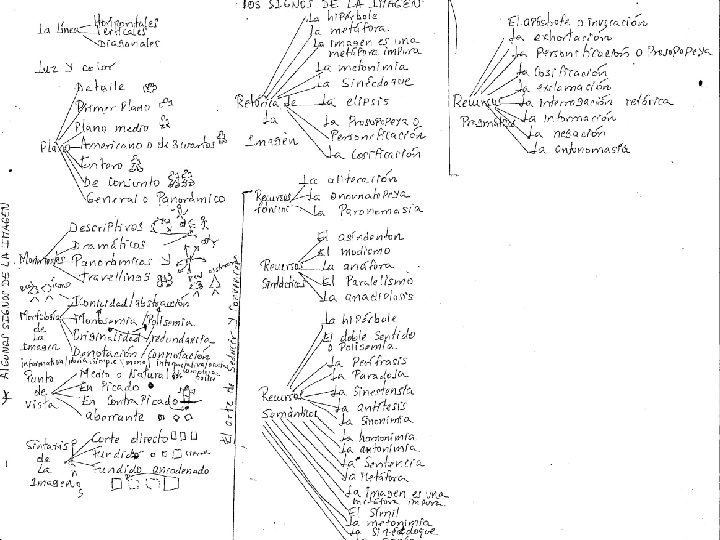 * ALGUNOS SIGNOS DE LA IMAGEN
La línea
Horizontales
Verticales
Diagonales
Luz y color
Plano
Detalle
Primer Plano
Plano medio
Americano o de 3 cuartos
Entero
De Conjunto
General o Panorámico
Descriptivos
Dramáticos
Panorámicos
Travellings
Morfología
de
La
Imagen
Iconicidad/abstracción
Monosemia/Polisemia
Originalidad/redundancia
Denotación/Connotación
Punto
de
vista
Medio o Natural
En Picado
En Contra Picado
aberrante
Sintaxis
de
La
Imagen
Corte directo
Fundido
Fundido encadenado
LOS SIGNOS DE LA IMAGEN
Retórica de
La
Imagen
La hipérbole
La metáfora
La imagen es una
metáfora impura
La metonimia
La Sinécdoque
La elipsis
La Prosopopeya o
Personificación
La Cosificación
El arte de Seducir y Convencer
Recursos
fónicos
La aliteración
La Onomatopeya
La Paronomasia
Recursos
Sintácticos
El asíndenton
El modismo
La anáfora
El Paralelismo
La anadiplosis
Recursos
Semánticos
La hipérbole
El doble sentido
o Polisemia
La Perífrasis
La Paradoja
La Sinestensia
La antítesis
La Sinonimia
La homonimia
La antonimia
La Sentencia
La Metáfora
La imagen es una
metáfora impura
El Símil
La metonimia
La Sinécdoque
Recursos
Pragmáticos
El apóstofe o invocación
La exhortación
La Personificación o Prosopopeya
La Cosificación
La exclamación
La Interrogación retórica
La Información
La negación
La antonomasia